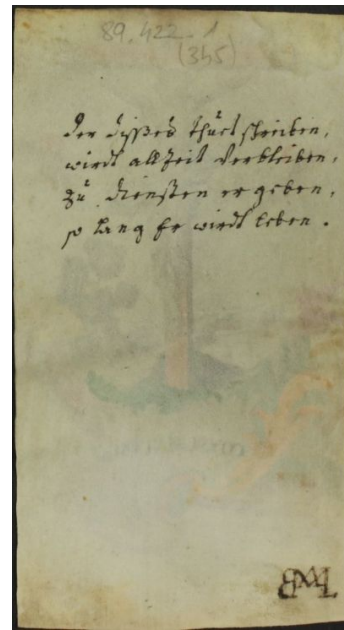 89.422.1
(345)
Der dißes thuet schreiben,
wirdt allzeit verbleiben,
zu diensten ergeben,
so lang Er wirdt leben.